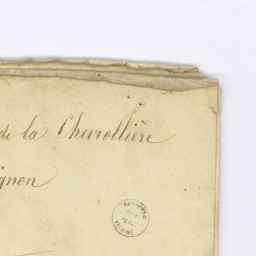 de la Churollière
gnon